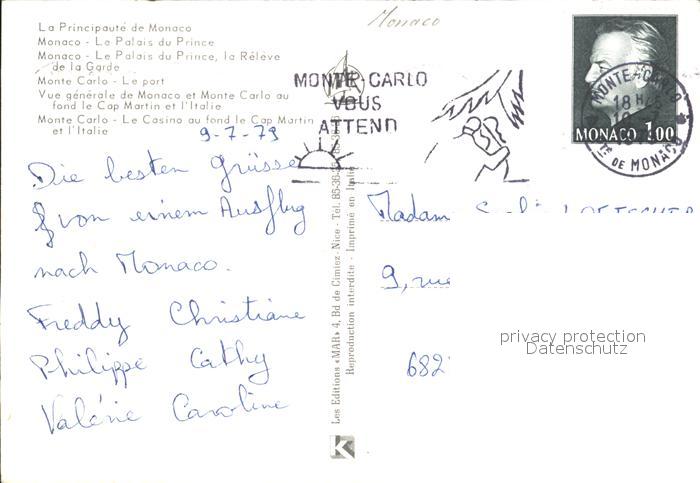 La Principauté de Monaco
Monaco - Le Palais du Prince
Monaco - Le Palais du Prince, la Relève
de la Garde
Monte Carlo - Le port
Vue générale de Monaco et Monte Carlo au
fond le Cap Martin et l'Italie
Monte Carlo - Le Casino au fond le Cap Martin
et l'Italie
Monaco
MONTE-CARLO
VOUS
ATTEND
MONTE-CARLO
18 H
PTE DE MONACO
MONACO 1,00
9-7-79
Die besten Grüsse
von einem Ausflug
nach Monaco.
Freddy Christiane
Philippe Cathy
Valérie Caroline
Les Editions «MAR» 4, Bd de Cimiez - Nice - Tél. 85-36-35
Reproduction interdite - Imprimé en Italie
K
Madam
9, rue
682
privacy protection
Datenschutz